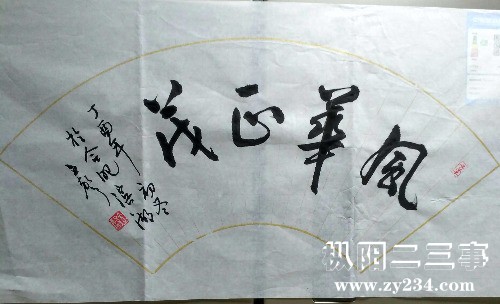 風華正茂
丁酉年初冬
於合肥滨湖
枞阳二三事
www.zy234.com